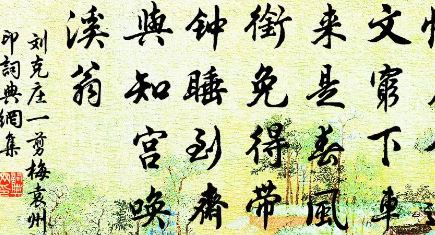 文窮下車
来是春風
銜免得带
钟睡到齋
與知宫唤
溪翁
刘克庄一剪梅袁州
印詞典網集